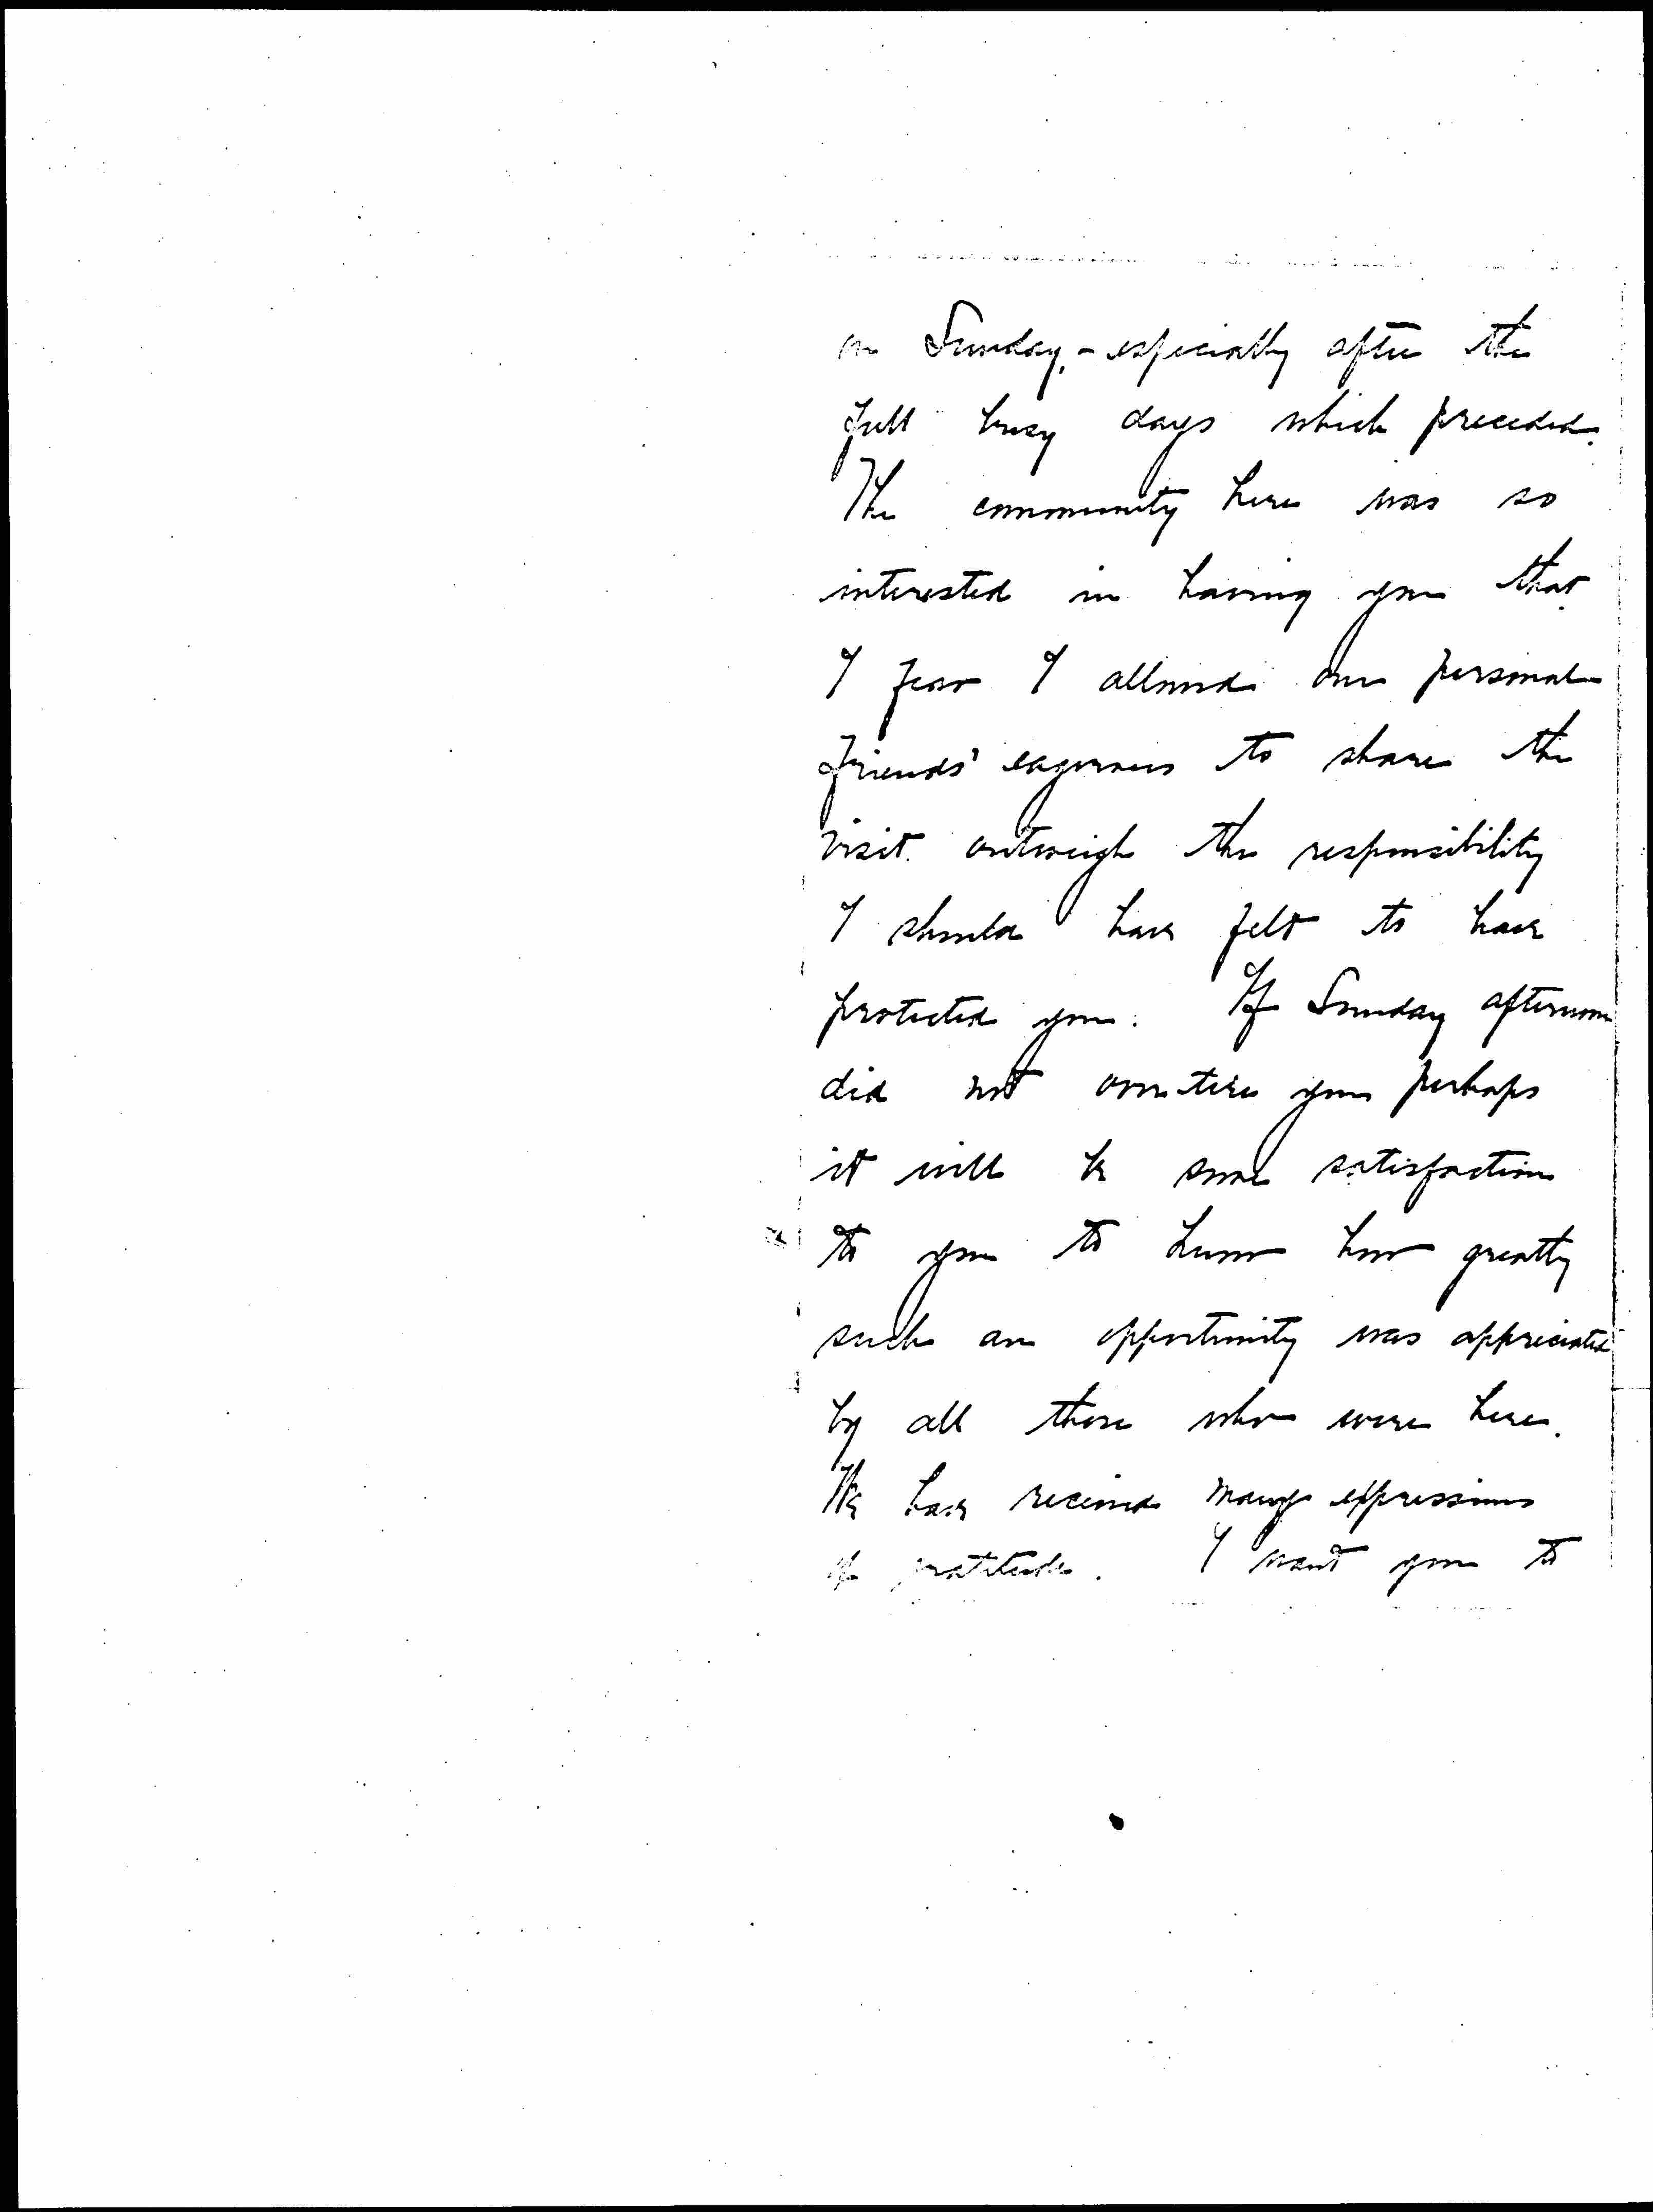 on Sunday, - especially after the
full busy days which preceded.
The community here was so
interested in having you that
I fear I allowed our personal
friends' eagerness to share the
visit outweigh the responsibility
I should have felt to have
protected you. If Sunday afternoon
did not overtire you perhaps
it will be some satisfaction
to you to know how greatly
such an opportunity was appreciated
by all those who were here.
We have received many expressions
of gratitude. I want you to